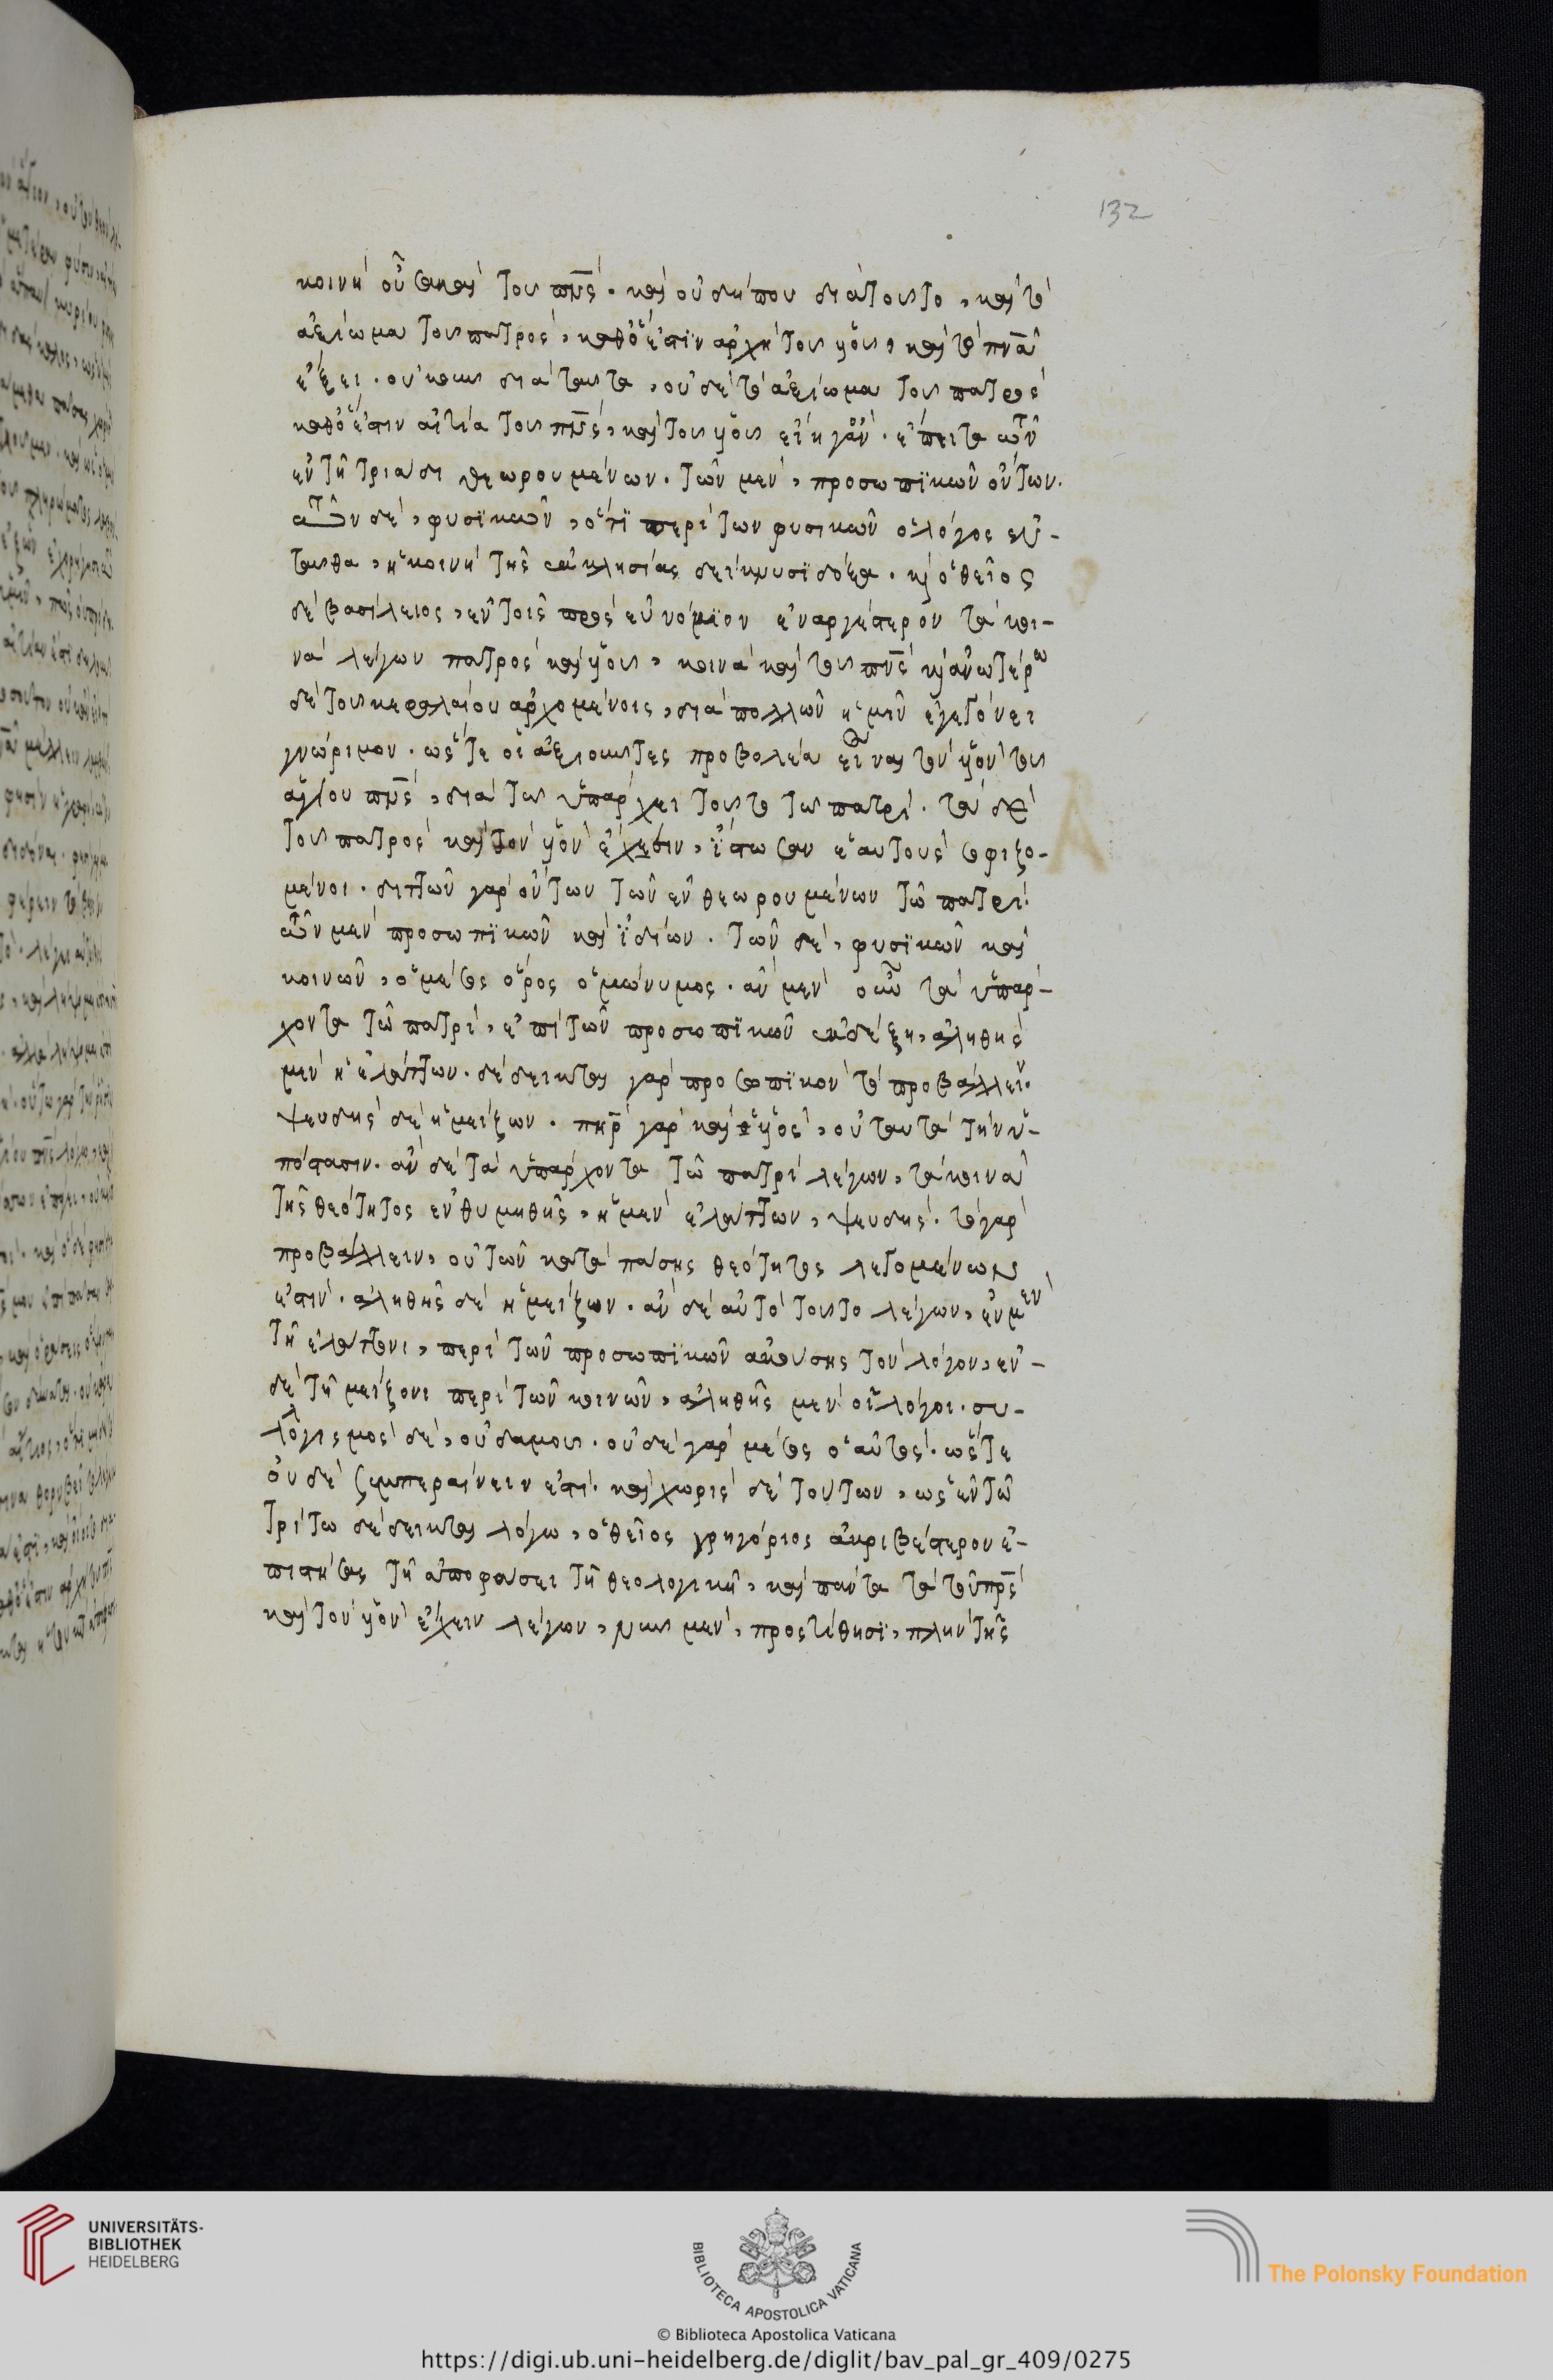 132
κοινὴ οὖσα καὶ τοῦ πν̅ς. καὶ οὐ δήπου διατοῦτο, καὶ τὸ
ἀξίωμα τοῦ πατρὸς, καθὅ ἐστϊν ἀρχὴ τοῦ υἱοῦ, καὶ τὸ πνα̅
ἕξει. οὐκοῦν διὰ ταῦτα, οὐδὲ τὸ ἀξίωμα τοῦ πατρὸς
καθὅ ἐστιν αἰτία τοῦ πν̅ς, καὶ τοῦ υἱοῦ εἴη γἂν. ἔπειτα τῶν
ἐν τῆ τριάδι θεωρουμένων. τῶν μὲν, προσωπϊκῶν ὄντων.
τῶν δὲ, φυσϊκῶν, ὅτϊ περὶ τῶν φυσικῶν ὁ λόγος ἐν-
ταῦθα, ἡ κοινὴ τῆς ἐκκλησίας δείκνυσϊ δόξα. κỳ ὁ θεῖος
δὲ βασίλειος, ἐν τοῖς πρὸς εὐνόμϊον ἐναργέστερον τὰ κοι-
νὰ λέγων πατρὸς καὶ υἱοῦ, κοινὰ καὶ τοῦ πν̅ς κỳ ἀνωτέρω
δὲ τοῦ κεφαλαίου ἀρχομένοις, διὰ πολλῶν ἡμῖν ἐγεγόνει
γνώριμον. ὥςτε οἱ ἀξιοῦντες προβολέα εἶναι τὸν υἱὸν τοῦ
ἁγίου πν̅ς, διὰ τὸ ὑπάρχει τοῦτο τῶ πατρὶ. τὰ δὲ
τοῦ πατρὸς καὶ τὸν υἱὸν ἔχειν, ἴστωσαν ἑαυτοὺς σοφιζό-
μενοι. διττῶν γὰρ ὄντων τῶν ἐνθεωρουμένων τῶ πατρὶ.
τῶν μὲν προσωπϊκῶν καὶ ἰδίων. τῶν δὲ, φυσϊκῶν καὶ
κοινῶν, ὁ μέσος ὅρος ὁμώνυμος. ἂν μὲν οὖν τὰ ὑπάρ-
χοντα τῶ πατρὶ, ἐπὶ τῶν προσωπϊκῶν ἐκδέξη, ἀληθὴς
μὲν ἡ ἐλάττων. δέδεικται γὰρ προσωπϊκὸν τὸ προβάλλειν.
ψευδὴς δὲ ἡ μείζων. πη̅ρ γὰρ καὶ ὁ υἱὸς, οὐ ταυτὰ τὴν ὑ-
πόστασιν. ἂν δὲ τὰ ὑπάρχοντα τῶ πατρὶ λέγων, τὰ κοινὰ
τῆς θεότητος ἐνθυμηθῆς, ἡ μὲν ἐλάττων, ψευδὴς. τὸ γὰρ
προβάλλειν, οὐ τῶν κατὰ πάσης θεότητος λεγομένων
ἐστὶν. ἀληθὴς δὲ ἡ μείζων. ἂν δὲ αὐτὸ τοῦτο λέγων, ἐν μὲν
τῆ ἐλάττονι, περὶ τῶν προσωπϊκῶν ἀκούσης τὸν λόγον, ἐν
δὲ τῆ μείζονι περὶ τῶν κοινῶν, ἀληθῆς μὲν οἱ λόγοι. συ-
λογισμὸς δὲ, οὐδαμοῦ. οὐδὲ γὰρ μέσος ὁ αὐτὸς. ὥςτε
οὐδὲ ξυμπεραίνειν ἔστι. καὶ χωρὶς δὲ τούτων, ὡς ἐν τῶ
τρίτω δέδεικται λόγω, ὁ θεῖος γρηγόριος ἀκριβέστερον ἐ-
πιστήσας τῆ ἀποφάσει τῆ θεολογικῆ, καὶ πάντα τὰ τοῦ πρ̅ς
καὶ τὸν υἱὸν ἔχειν λέγων, νῦν μὲν, προςτίθησϊ, πλὴν τῆς
UNIVERSITÄTS-
BIBLIOTHEK
HEIDELBERG
BIBLIOTECA APOSTOLICA VATICANA
The Polonsky Foundation
© Biblioteca Apostolica Vaticana
https://digi.ub.uni-heidelberg.de/diglit/bav_pal_gr_409/0275